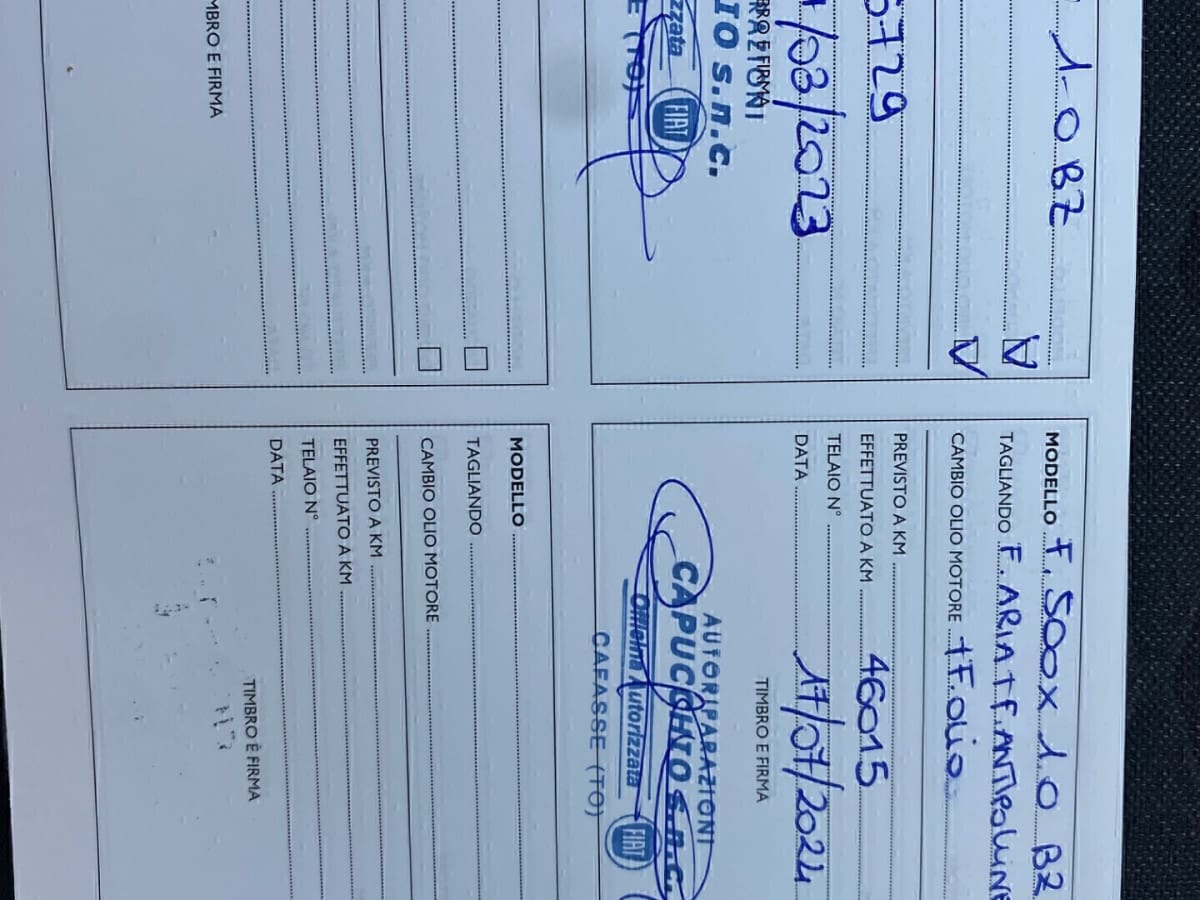 1.0 BZ
5729
/03/2023
BRO E FIRMA
RAZIONI
IO s.n.c.
zzata
FIAT
E (TO)
MODELLO F. 500X 1.0 BZ
TAGLIANDO F. ARIA + F. ANTIPOLLINE
CAMBIO OLIO MOTORE + F. OLIO
PREVISTO A KM
EFFETTUATO A KM 46015
TELAIO N°
DATA 17/07/2024
TIMBRO E FIRMA
AUTORIPARAZIONI
CAPUCCHIO s.n.c.
Officina Autorizzata
FIAT
CAFASSE (TO)
MBRO E FIRMA
MODELLO
TAGLIANDO
CAMBIO OLIO MOTORE
PREVISTO A KM
EFFETTUATO A KM
TELAIO N°
DATA
TIMBRO E FIRMA